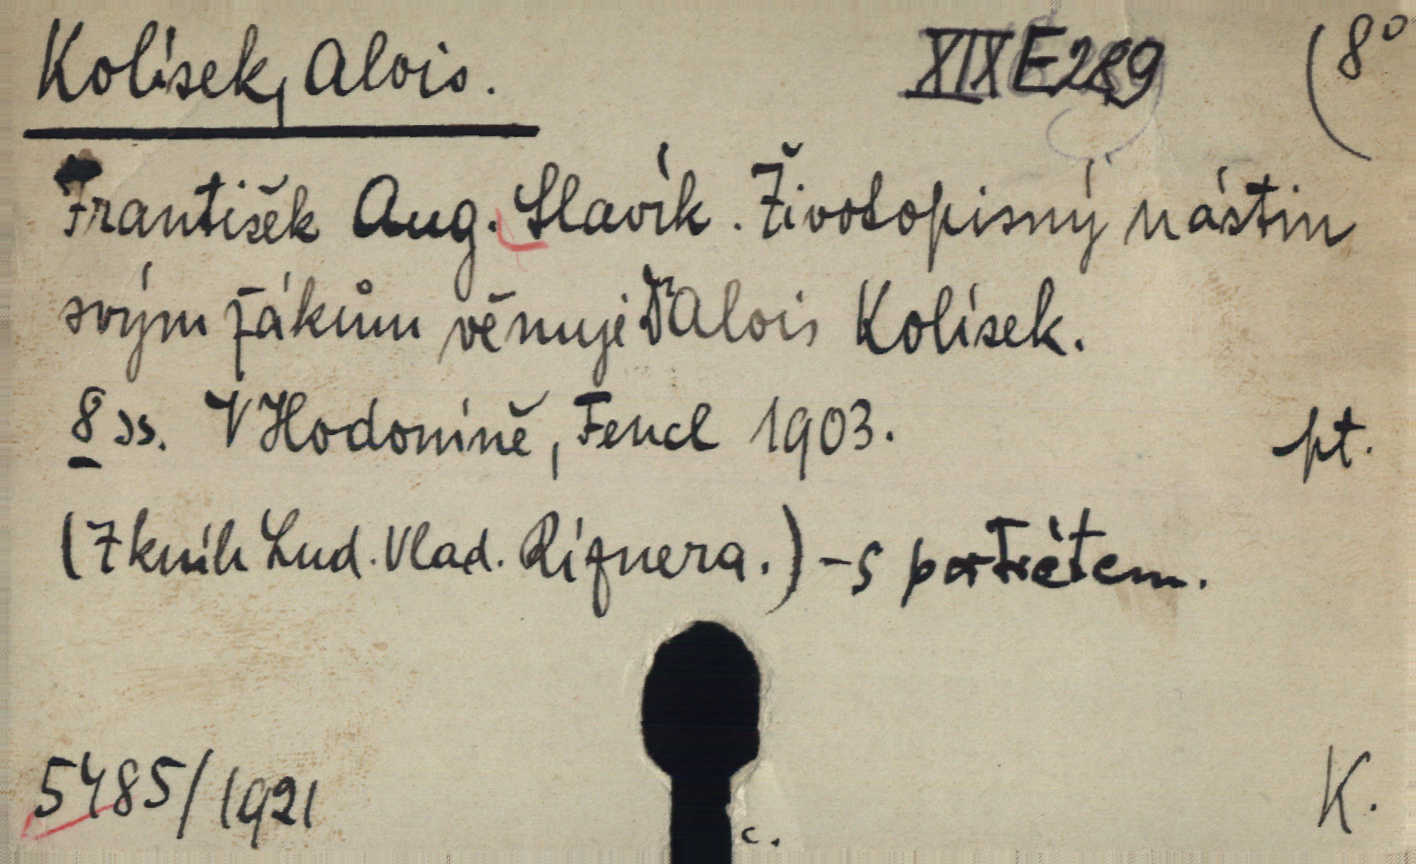 Kolísek, Alois. XIX E 289 (8°
František Aug. Slavík. Životopisný nástin
svým žákům věnuje Dr Alois Kolísek.
8 ss. V Hodoníně, Fencl 1903. pt.
(Z knih Lud. Vlad. Rifnera.) - s portrétem.
5485/1921 K.
c.